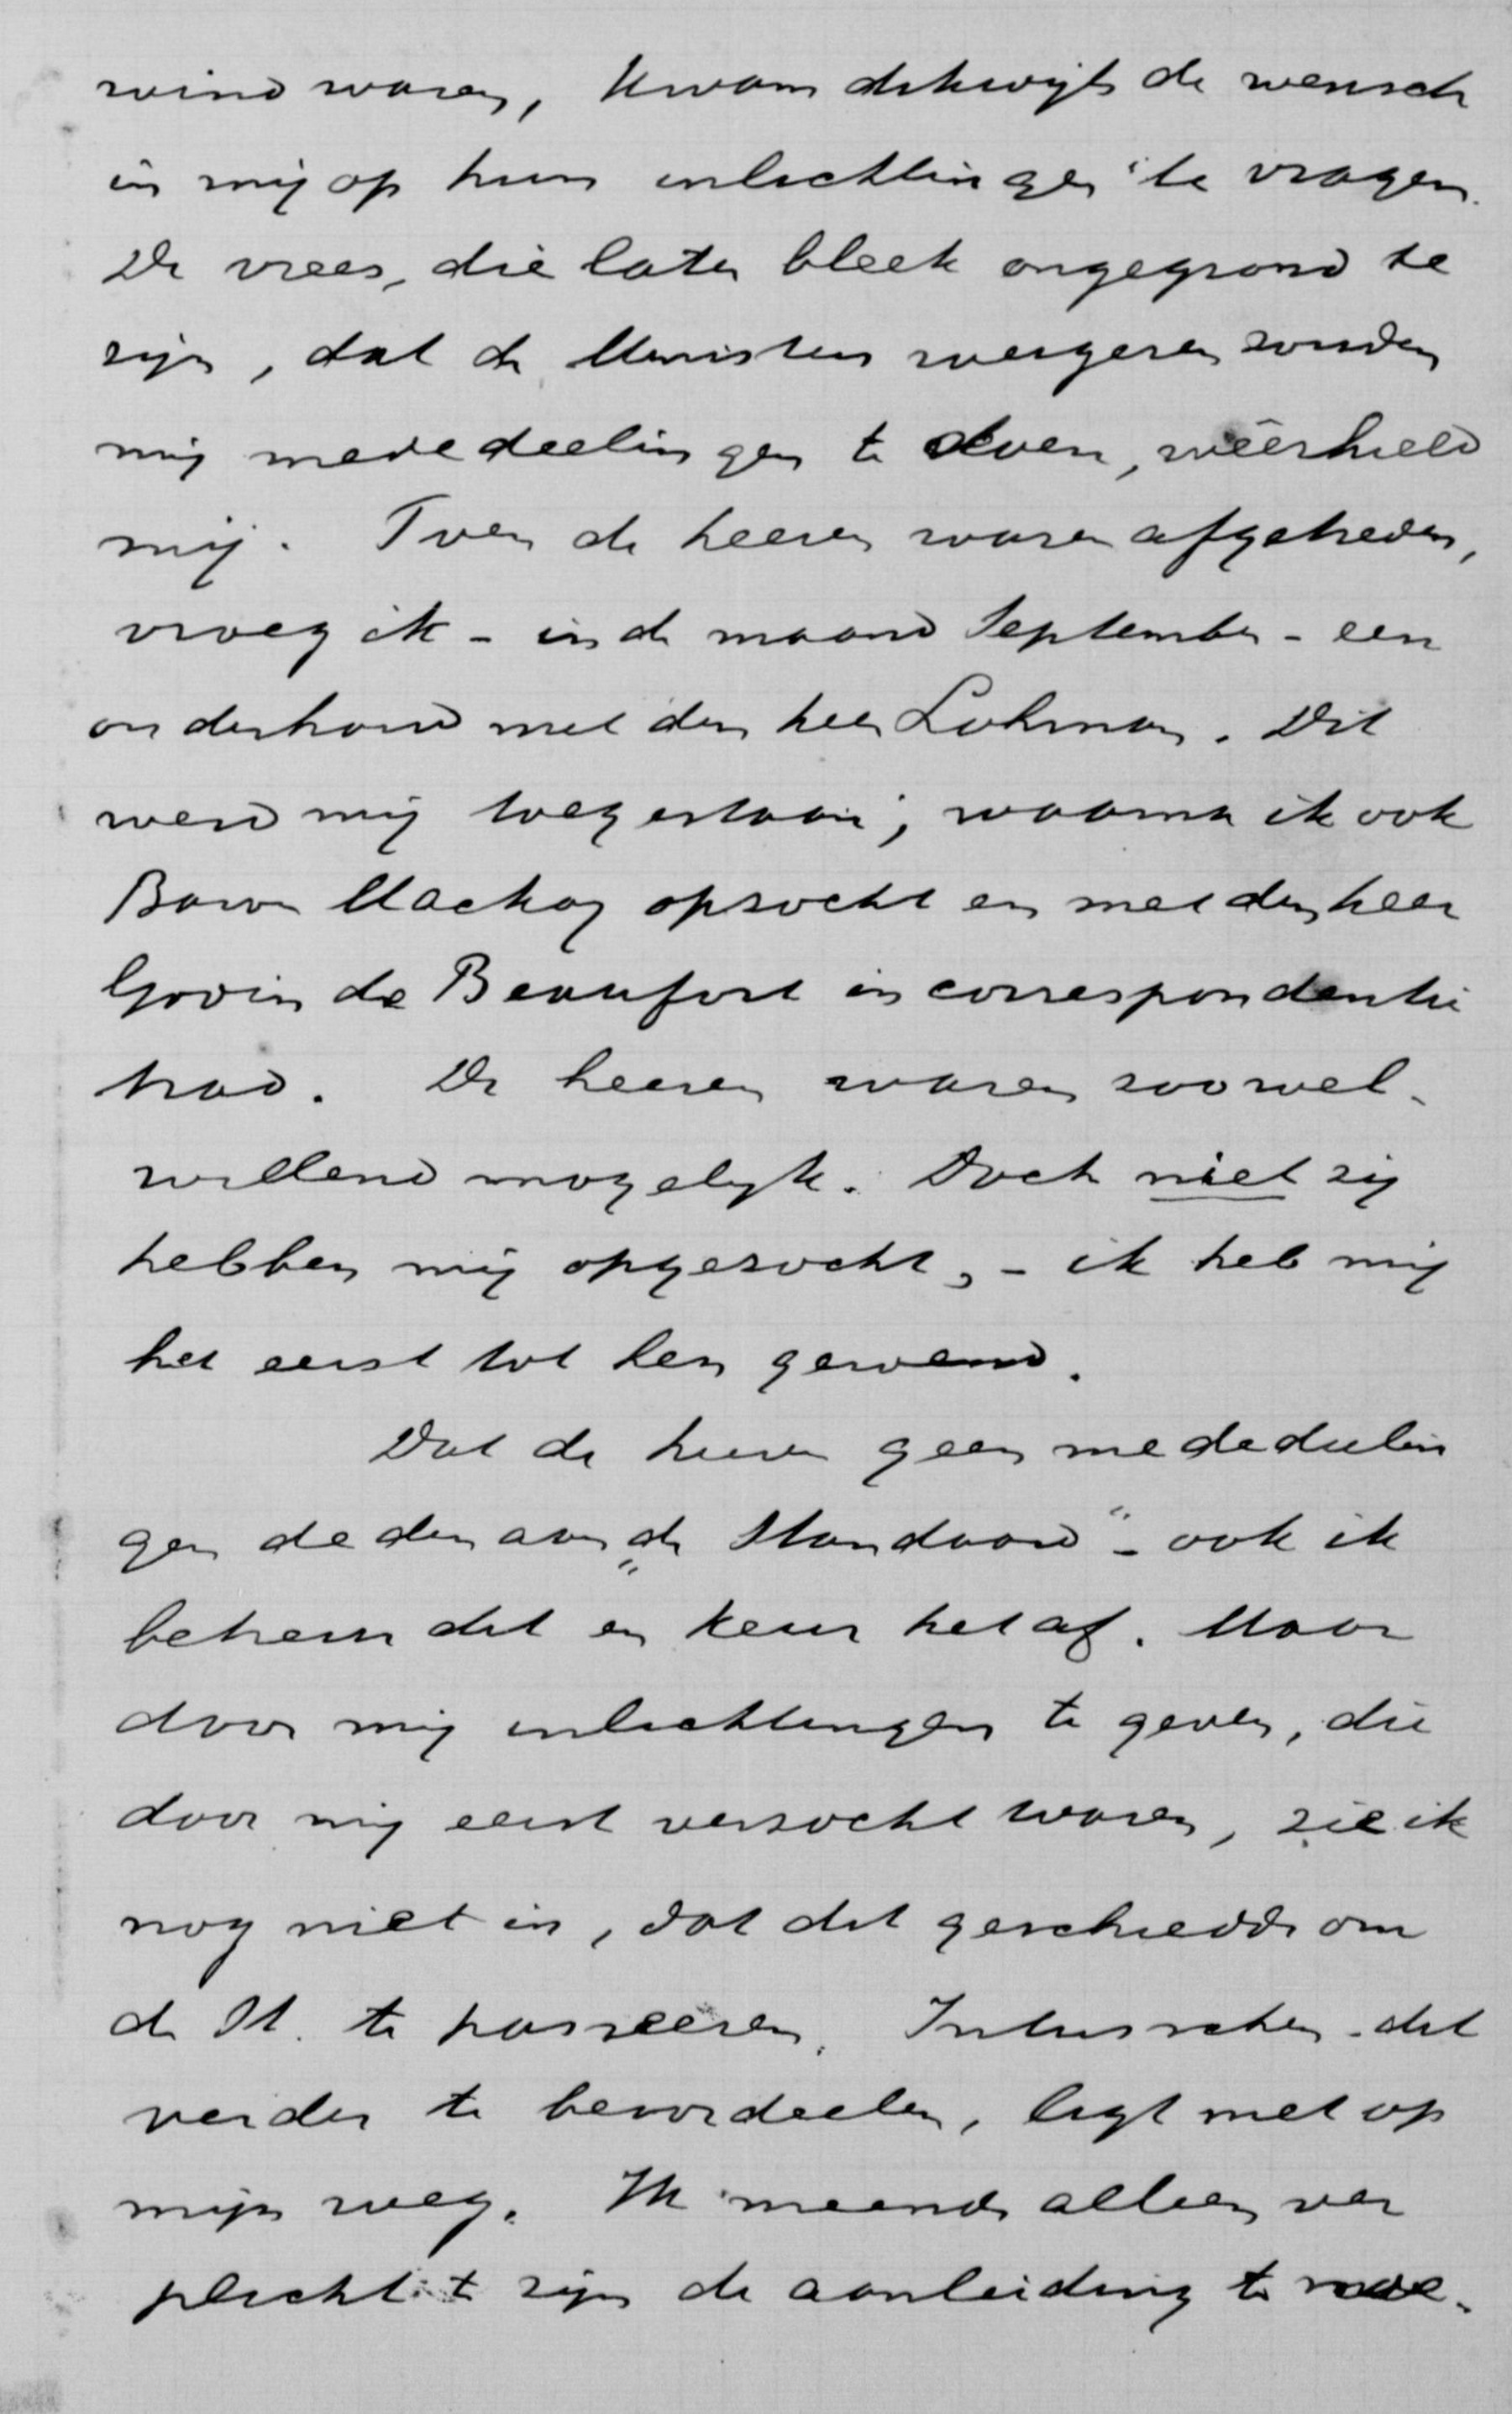 wind waren, kwam dikwijls de wensch
in mij op hun inlichtingen te vragen.
De vrees, die later bleek ongegrond te
zijn, dat de Ministers weigeren zouden
mij mededeelingen te doen, weêrhield
mij. Toen de heeren waren afgetreden,
vroeg ik - in de maand September - een
onderhoud met den heer Lohman. Dit
werd mij toegestaan; waarna ik ook
Baron Mackay opzocht en met den heer
Godin de Beaufort in correspondentie
trad. De heeren waren zoo wel-
willend mogelijk. Doch niet zij
hebben mij opgezocht, - ik heb mij
het eerst tot hen gewend.
Dat de heeren geen mededeelin
gen deden aan „de Standaard" - ook ik
betreur dit en keur het af. Maar
door mij inlichtingen te geven, die
door mij eerst verzocht waren, zie ik
nog niet in, dat dit geschiedde om
de St. te passeeren. Intusschen - dit
verder te beoordeelen, ligt niet op
mijn weg. Ik meende alleen ver
plicht te zijn de aanleiding te